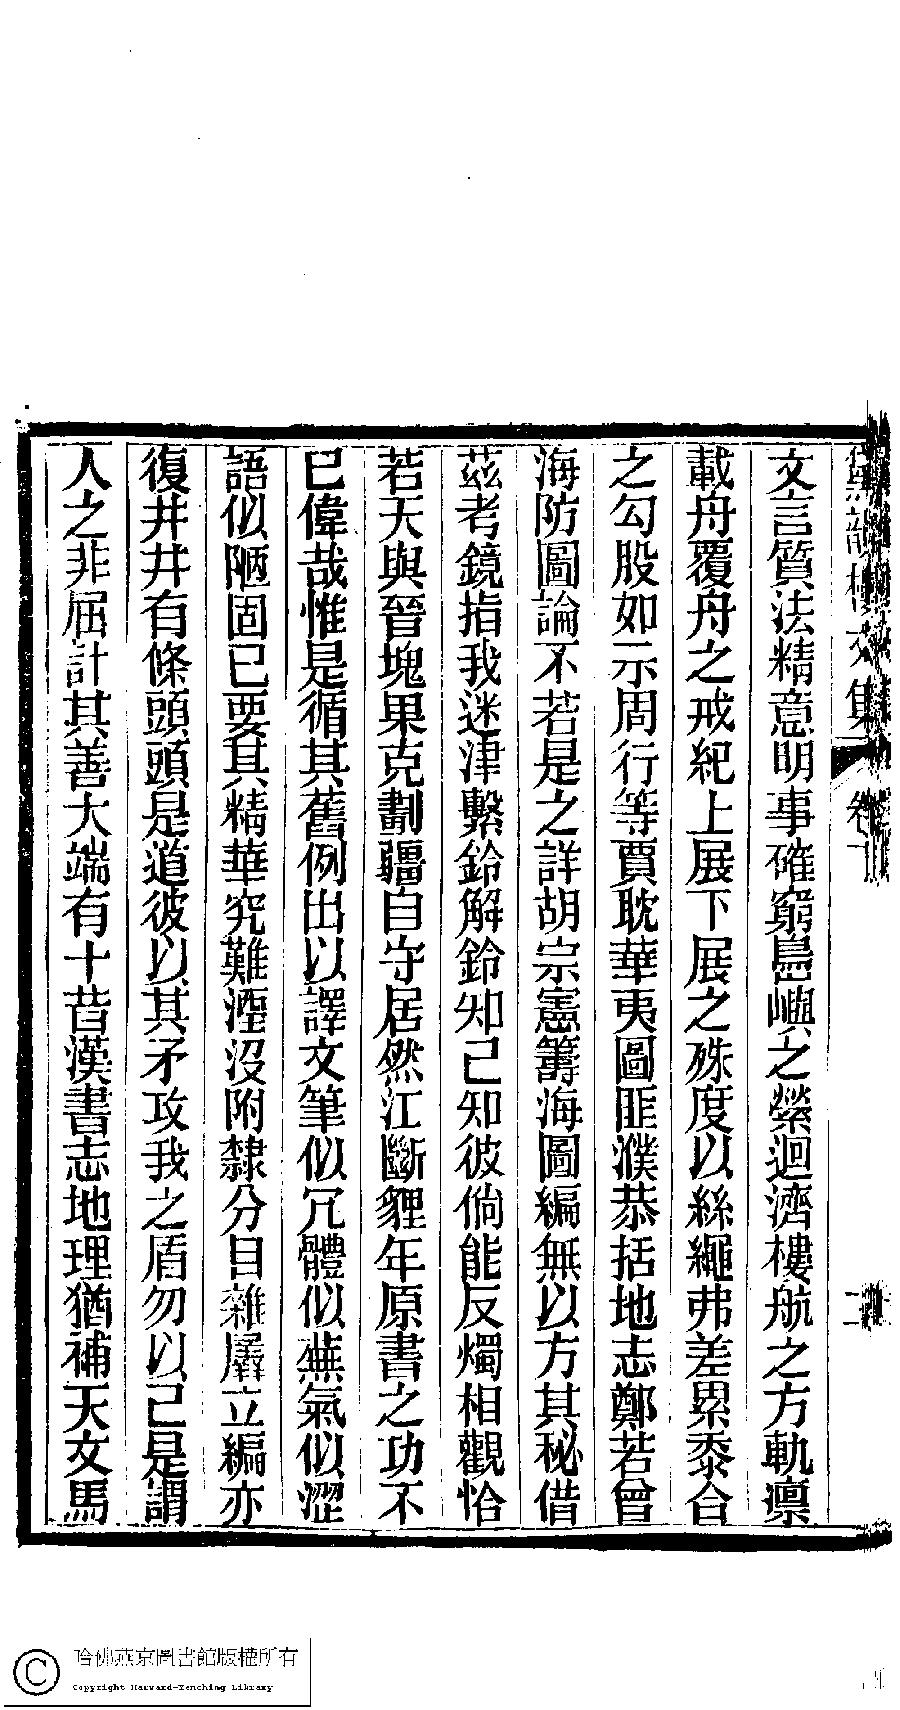 文言質法精意明事確窮島嶼之縈迴濟樓航之方軌凜
載舟覆舟之戒紀上展下展之殊度以絲繩弗差累黍合
之勾股如示周行等賈耽華夷圖匪濮恭括地志鄭若曾
海防圖論不若是之詳胡宗憲籌海圖編無以方其秘借
茲考鏡指我迷津繫鈴解鈴知己知彼倘能反燭相觀恰
若天與晉塊果克劃疆自守居然江斷貍年原書之功不
已偉哉惟是循其舊例出以譯文筆似冗體似蕪氣似澀
語似陋固已要其精華究難湮沒附隸分目雜廁立編亦
復井井有條頭頭是道彼以其矛攻我之盾勿以己是謂
人之非屈計其善大端有十昔漢書志地理猶補天文馬
文集 卷一
二
哈佛燕京圖書館版權所有
Copyright Harvard-Yenching Library